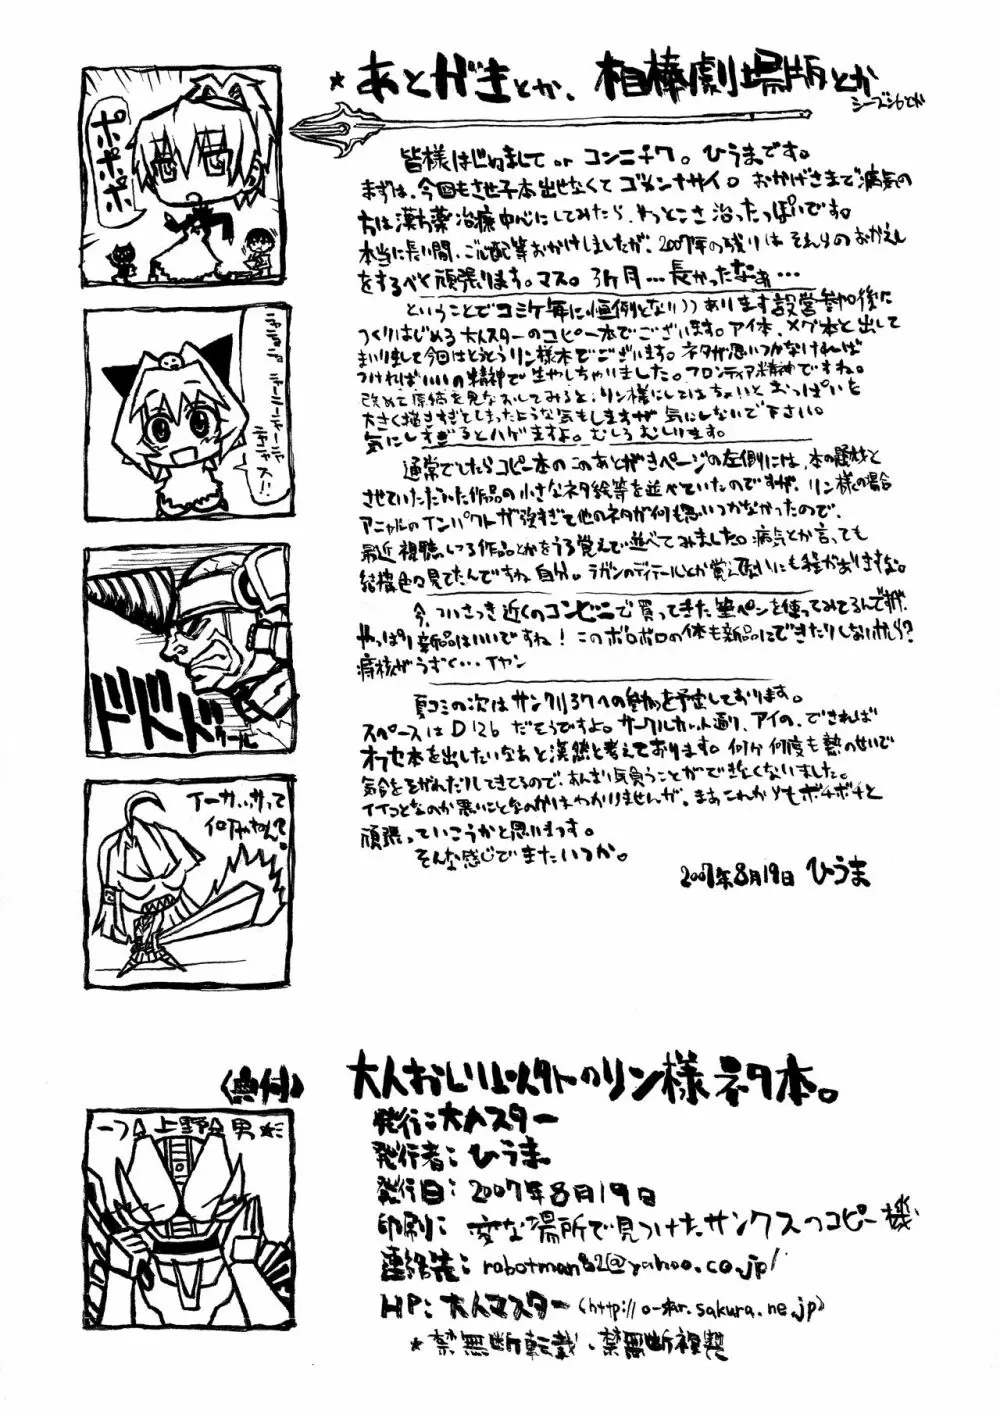 ★あとがきとか、相棒劇場版とか
シーズン6とか
皆様はじめまして or コンニチワ。ひうまです。
まずは、今回もさせ子本出せなくてゴメンナサイ。おかげさまで病気の
方は漢方薬治療中心にしてみたら、やっとこさ治ったっぽいです。
本当に長い間、ご心配等おかけしましたが、2007年の残りはそれらのおかえし
をするべく頑張ります。マス。3ヶ月…長かったなぁ…
ということでコミケ毎に恒例となりつつあります設営参加後に
つくりはじめる大人スターのコピー本でございます。アイ本、メグ本と出して
まいりまして今回はとうとうリン様本でございます。ネタが思いつかなければ
つければいいの精神で生やしちゃいました。フロンティア精神ですね。
改めて原稿を見なおしてみると、リン様にしてはちょいとおっぱいを
大きく描きすぎてしまったような気もしますが気にしないで下さい。
気にしすぎるとハゲますよ。むしろむしります。
通常でしたらコピー本のこのあとがきページの左側には、本の題材と
させていただいた作品の小さなネタ絵等を並べていたのですが、リン様の場合
アニャルのインパクトが強すぎて他のネタが何も思いつかなかったので、
最近視聴してる作品とかをうろ覚えで並べてみました。病気とか言っても
結構色々見てたんですね自分。ラガンのディテールとか覚えてないにも程がありすぎな。
今、ついさっき近くのコンビニで買ってきた筆ペンを使ってみてるんですが、
やっぱり新品はいいですね!このボロボロの体も新品にできたりしないかしら?
痔核がうずく…イヤン
夏コミの次はサンクリ37への参加を予定しております。
スペースは D12b だそうですよ。サークルカット通り、アイの、できれば
オフセ本を出したいなぁと漠然と考えております。何分何度も熱のせいで
気合をそがれたりしてきてるので、あんまり気負うことができなくなりました。
イイコとなのか悪いことなのかはわかりませんが、まあこれからもボチボチと
頑張っていこうかと思います。
そんな感じでまたいつか。
2007年8月19日 ひうま
ポポポポ
ニャーニャーニャーニャ
ニャス!!
ドドドド
ドゥール
イーガ、サって
何ちゃねん?
〈奥付〉
上野 男
大人おしり以外のリン様ネタ本。
発行:大人スター
発行者:ひうま
発行日:2007年8月19日
印刷:変な場所で見つけたサンクスのコピー機
連絡先:robotman82@yahoo.co.jp
HP:大人マスター(http://o-star.sakura.ne.jp)
★禁無断転載、禁無断複製